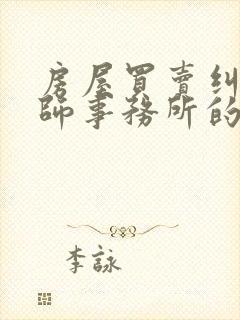 房屋買賣糾
師事務所的
李詠